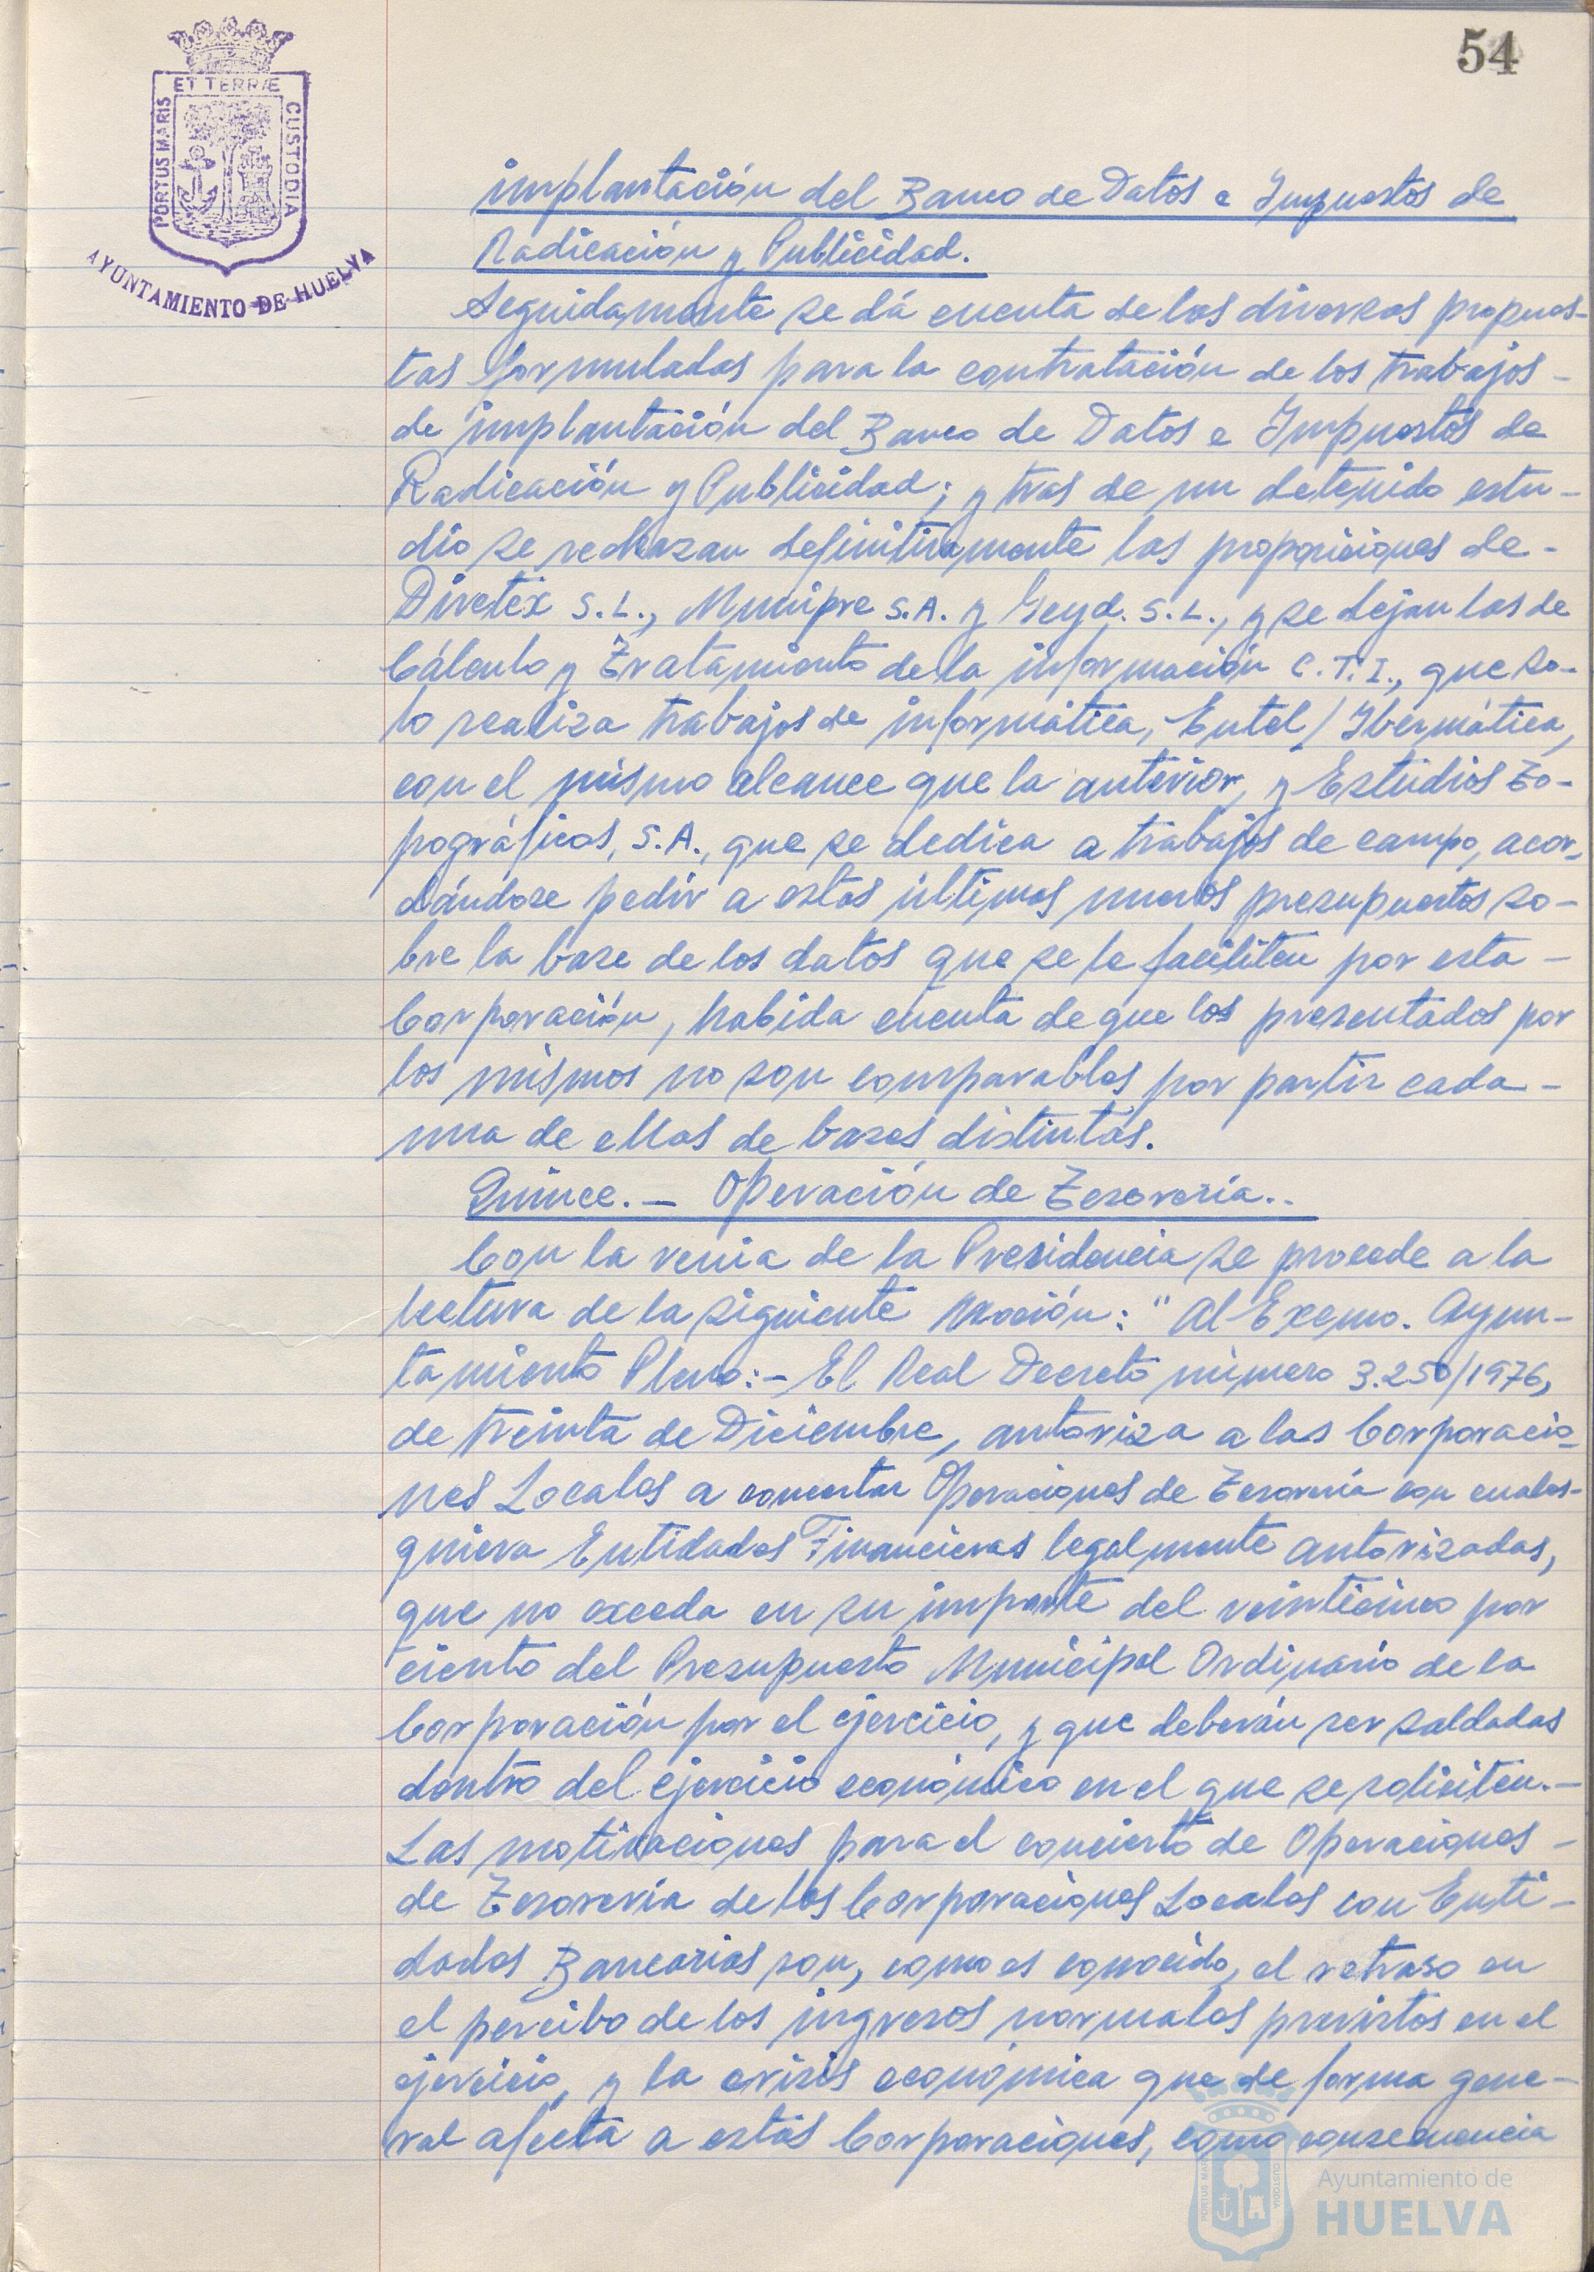 54
ET TERRÆ
PORTUS MARIS
CUSTODIA
AYUNTAMIENTO DE HUELVA
implantación del Banco de Datos e Impuestos de
Radicación y Publicidad.
Seguidamente se dá cuenta de las diversas propues-
tas formuladas para la contratación de los trabajos -
de implantación del Banco de Datos e Impuestos de
Radicación y Publicidad; y tras de un detenido estu-
dio se rechazan definitivamente las proposiciones de -
Divetex S.L., Munipre S.A. y Geyd. S.L., y se dejan las de
Cálculo y Tratamiento de la información C.T.I., que so-
lo realiza trabajos de informática, Entel/Ibermática,
con el mismo alcance que la anterior, y Estudios To-
pográficos, S.A., que se dedica a trabajos de campo, acor-
dándose pedir a estas últimas nuevos presupuestos so-
bre la base de los datos que se le faciliten por esta -
Corporación, habida cuenta de que los presentados por
los mismos no son comparables por partir cada -
una de ellas de bases distintas.
Quince.- Operación de Tesorería.-
Con la venia de la Presidencia se procede a la
lectura de la siguiente Moción: "Al Excmo. Ayun-
tamiento Pleno:- El Real Decreto número 3.250/1976,
de treinta de Diciembre, autoriza a las Corporacio-
nes Locales a concertar Operaciones de Tesorería con cuales-
quiera Entidades Financieras legalmente autorizadas,
que no exceda en su importe del veinticinco por
ciento del Presupuesto Municipal Ordinario de la
Corporación por el ejercicio, y que deberán ser saldadas
dentro del ejercicio económico en el que se soliciten.-
Las motivaciones para el concierto de Operaciones -
de Tesorería de las Corporaciones Locales con Enti-
dades Bancarias son, como es conocido, el retraso en
el percibo de los ingresos normales previstos en el
ejercicio, y la crisis económica que de forma gene-
ral afecta a estas Corporaciones, como consecuencia
Ayuntamiento de
HUELVA